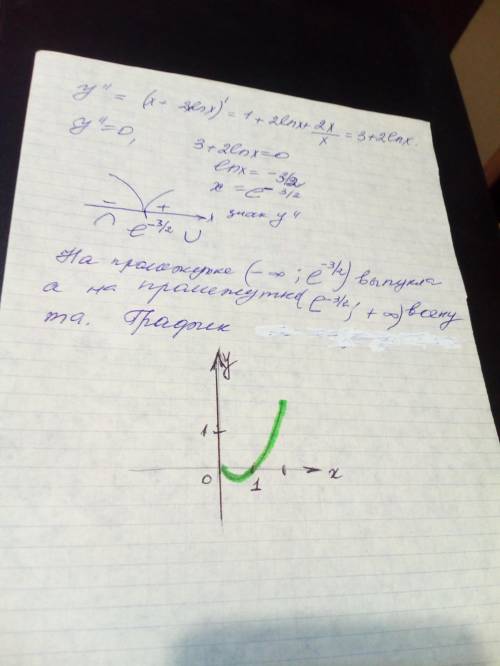 y'' = (x + 2xlnx)' = 1 + 2lnx + 2x/x = 3+2lnx.
y''=0,
3+2lnx=0
lnx= -3/2
x = e^-3/2
- + знак y''
∩ e^-3/2 ∪
На промежутке (-∞; e^-3/2) выпукла
а на промежутке (e^-3/2; +∞) вогну
та. График
y
1
0 1 x